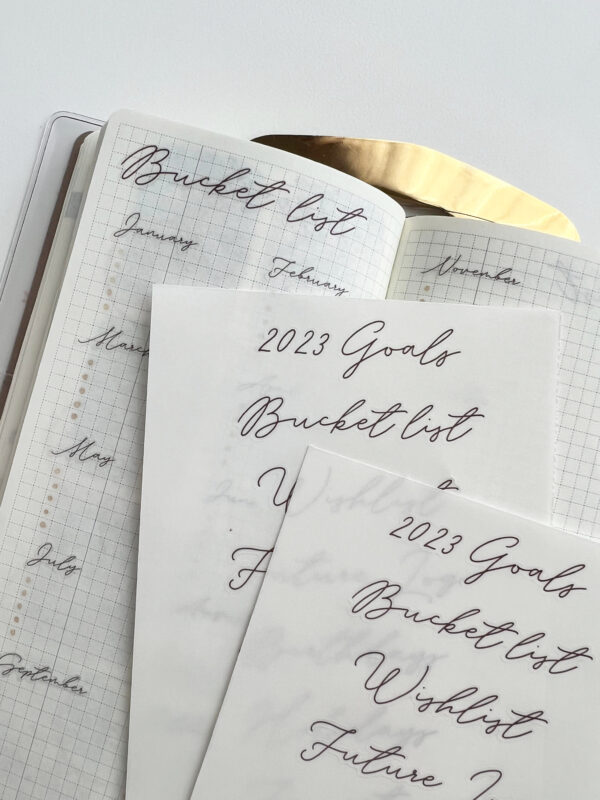 Bucket list
January
February
March
May
July
September
November
2023 Goals
Bucket list
2023 Goals
Bucket list
Wishlist
Future